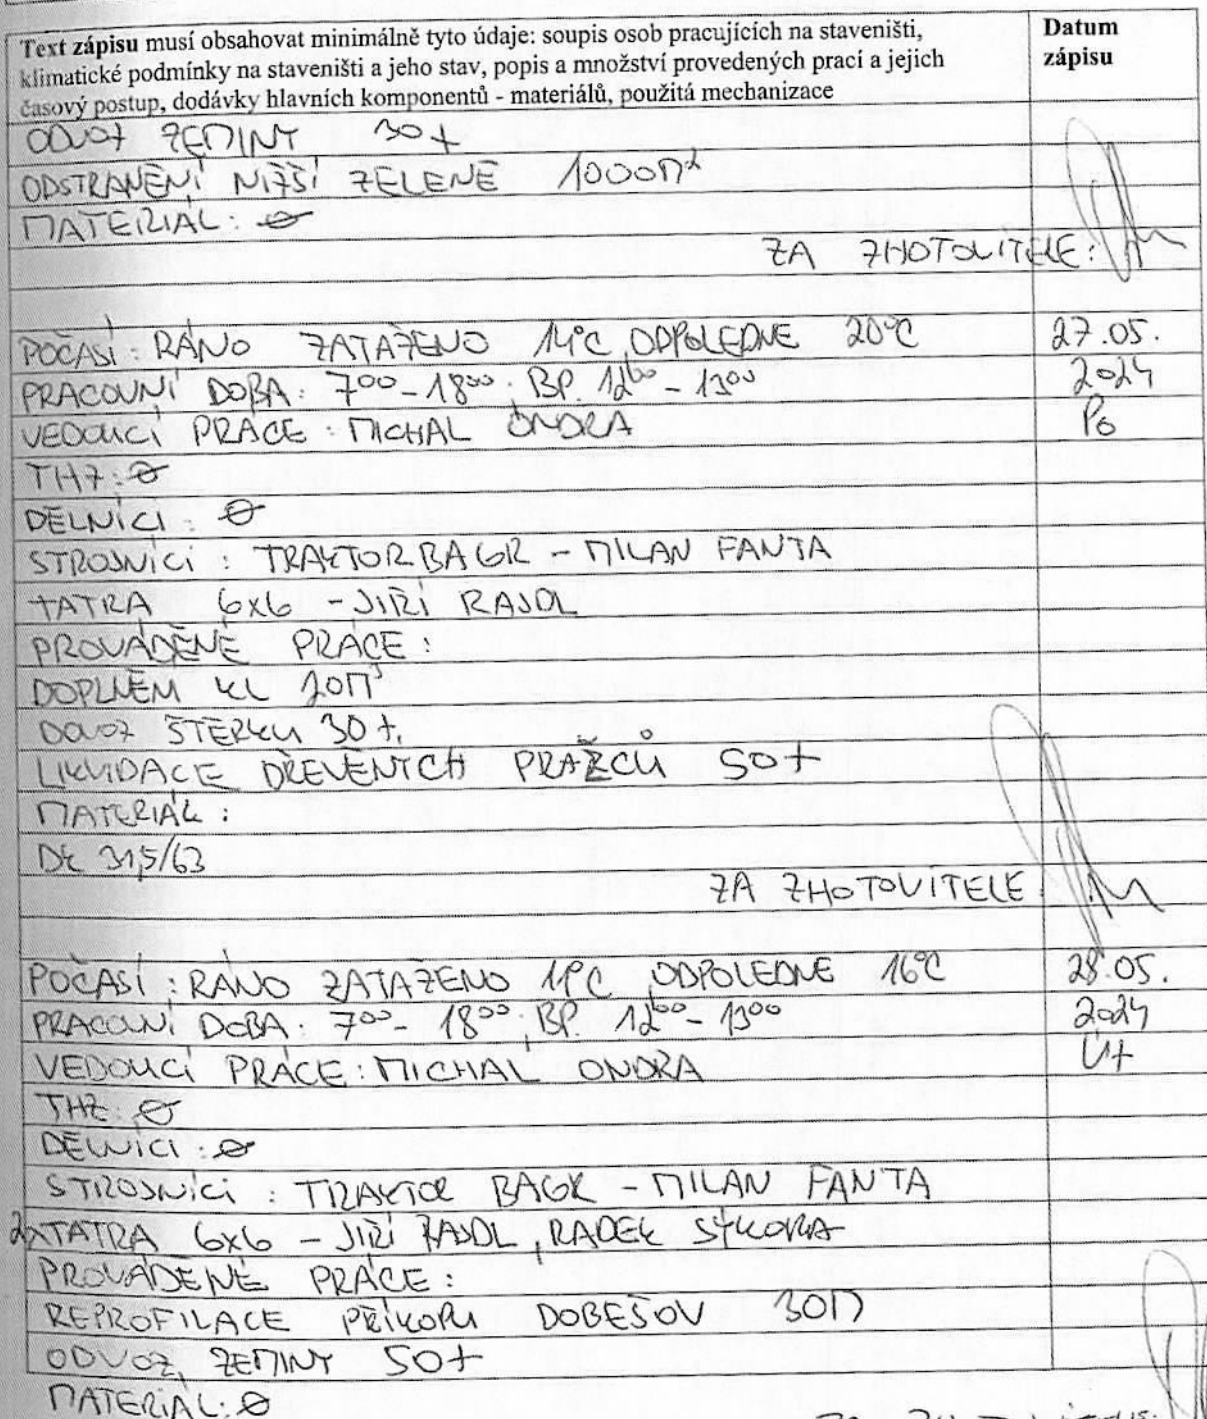 Text zápisu musí obsahovat minimálně tyto údaje: soupis osob pracujících na staveništi,
klimatické podmínky na staveništi a jeho stav, popis a množství provedených prací a jejich
časový postup, dodávky hlavních komponentů - materiálů, použitá mechanizace
Datum
zápisu
ODVOZ ZEMINY 30t
ODSTRANĚNÍ NIŽŠÍ ZELENĚ 1000M²
MATERIÁL: Ø
ZA ZHOTOVITELE:
POČASÍ: RÁNO ZATAŽENO 14°C ODPOLEDNE 20°C 27.05.
PRACOVNÍ DOBA: 7⁰⁰-18⁰⁰, BP. 12⁰⁰-13⁰⁰ 2024
VEDOUCÍ PRÁCE: MICHAL ONDRA Po
THZ: Ø
DĚLNÍCI: Ø
STROJNÍCI: TRAKTORBAGR - MILAN FANTA
TATRA 6x6 - JIŘÍ RAJDL
PROVÁDĚNÉ PRÁCE:
DOPLNĚNÍ KL 20M³
DOVOZ ŠTĚRKU 30t.
LIKVIDACE DŘEVĚNÝCH PRAŽCŮ 50t
MATERIÁL:
DK 31,5/63
ZA ZHOTOVITELE
POČASÍ: RÁNO ZATAŽENO 11°C ODPOLEDNE 16°C 28.05.
PRACOVNÍ DOBA: 7⁰⁰-18⁰⁰, BP. 12⁰⁰-13⁰⁰ 2024
VEDOUCÍ PRÁCE: MICHAL ONDRA Út
THZ: Ø
DĚLNÍCI: Ø
STROJNÍCI: TRAKTOR BAGR - MILAN FANTA
2xTATRA 6x6 - JIŘÍ RAJDL, RADEK SÝKORA
PROVÁDĚNÉ PRÁCE:
REPROFILACE PŘÍKOPU DOBEŠOV 30M
ODVOZ ZEMINY 50t
MATERIÁL: Ø